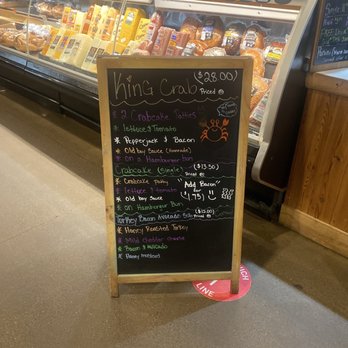 King ($28.00)
Crab Priced @
* 2 Crabcake Patties
* lettuce & Tomato
* Pepperjack & Bacon
* Old bay Sauce (Homemade)
* on a Hamburger bun
Crabcake (Single) ($13.50)
Priced @
* Crabcake patty "Add Bacon"
* lettuce & tomato for
* Old bay Sauce (1.75)
* on Hamburger Bun
Turkey Bacon Avocado ($12.00)
Priced @
* Honey Roasted Turkey
* Mild cheddar cheese
* Bacon & Avocado
* Honey mustard
LINE